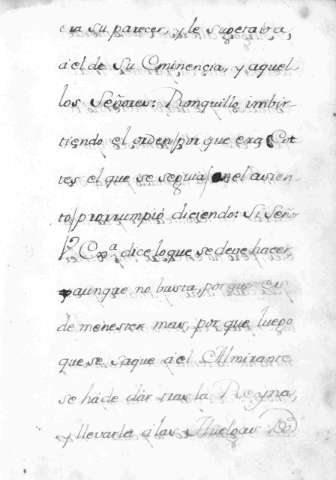 era su parecer, y le superaba,
a el de Su Eminencia, y aquel
los Señores: Ronquillo imbir
tiendo el orden/por que era Cor
tes el que se seguia/en el asien
to/prorrumpio diciendo: Si Seño
r, Exª dice lo que se deve hacer
aunque no basta, por que es
de menester mas, por que luego
que se saque a el Almirante
se há de dár tras la Reyna,
y llevarla a las Huelgas D